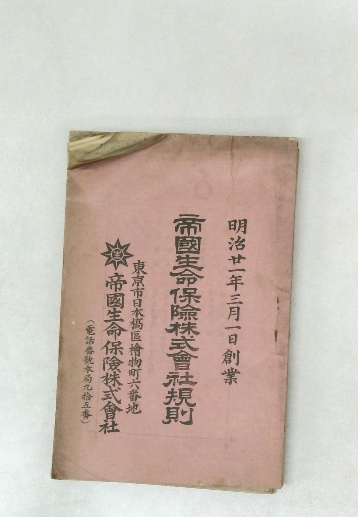 明治廿一年三月一日創業
帝國生命保險株式會社規則
東京市日本橋區檜物町六番地
帝國生命保險株式會社
（電話番號本局九拾五番）